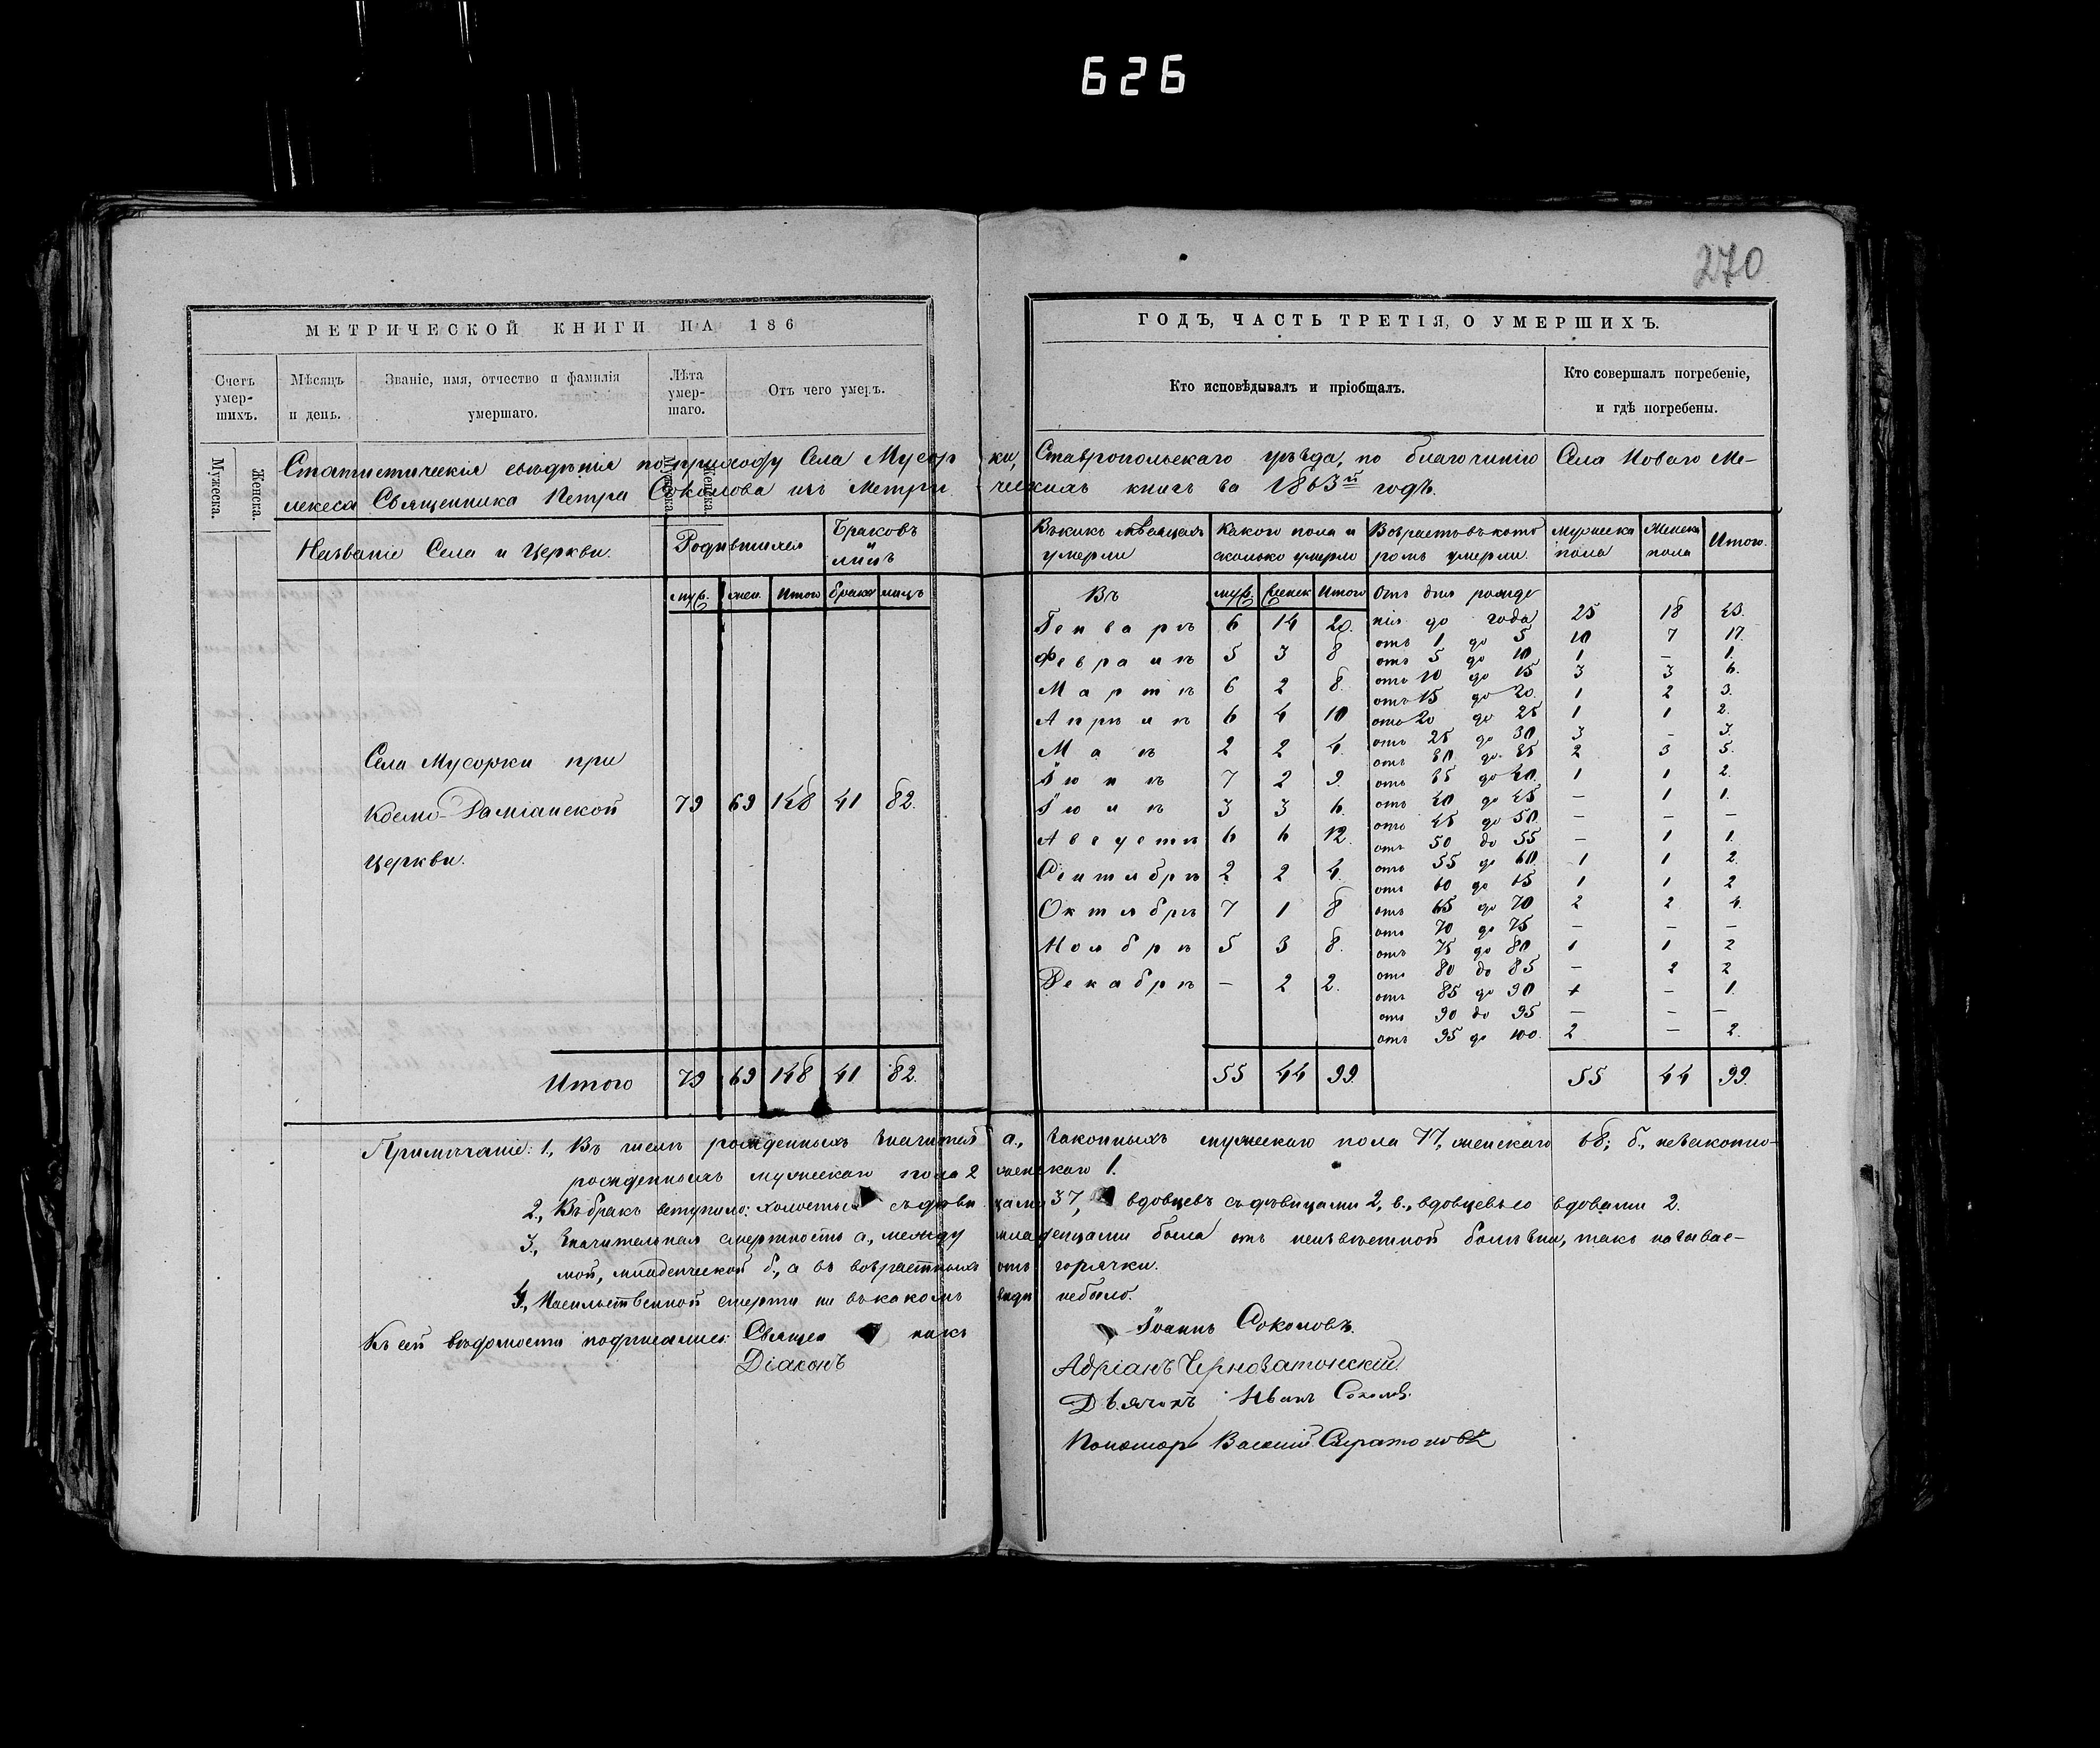 626
270
МЕТРИЧЕСКОЙ КНИГИ НА 186
ГОДЪ, ЧАСТЬ ТРЕТІЯ, О УМЕРШИХЪ.
Счетъ умер-шихъ.
Мужеска.
Женска.
Мѣсяцъ и день.
Званіе, имя, отчество и фамилія умершаго.
Лѣта умер-шаго.
Мужеска.
Женска.
Отъ чего умеръ.
Кто исповѣдывалъ и пріобщалъ.
Кто совершалъ погребеніе, и гдѣ погребены.
Статистическія свѣдѣнія по приходу Села Мусорки, Ставропольскаго уѣзда, по благочинію Села Новаго Ме-
лекеса Священника Петра Соколова изъ Метрическихъ книгъ за 1863й годъ.
Названіе Села и Церкви.
Родившихся
Браковъ и лицъ
муж. жен. Итого браков лицъ
Села Мусорки при
Космо-Даміанской
Церкви.
79 69 148 41 82.
Итого 79 69 148 41 82.
Въ какихъ мѣсяцахъ умерли
Какого пола и сколько умерло
Возрастъ въ кото ромъ умерли.
мужеска пола
Женска пола
Итого.
Въ муж. женск Итого
Генварѣ 6 14 20.
Февралѣ 5 3 8
Мартѣ 6 2 8.
Апрѣлѣ 6 4 10
Маѣ 2 2 4.
Іюнѣ 7 2 9.
Іюлѣ 3 3 6.
Августѣ 6 6 12.
Сентябрѣ 2 2 4.
Октябрѣ 7 1 8
Ноябрѣ 5 3 8.
Декабрѣ – 2 2.
55 44 99.
Отъ дня рожде
нія до года 25 18 43.
отъ 1 до 5 10 7 17.
отъ 5 до 10 1 – 1.
отъ 10 до 15 3 3 6.
отъ 15 до 20. 1 2 3.
отъ 20 до 25 1 1 2.
отъ 25 до 30 3 – 3.
отъ 30 до 35 2 3 5.
отъ 35 до 40. 1 1 2.
отъ 40 до 45 – 1 1.
отъ 45 до 50. – – –
отъ 50 до 55 – 1 1.
отъ 55 до 60 1 1 2.
отъ 60 до 65 1 1 2
отъ 65 до 70 2 2 4.
отъ 70 до 75 – – –
отъ 75 до 80 1 1 2
отъ 80 до 85 – 2 2
отъ 85 до 90 1 – 1.
отъ 90 до 95 – – –
отъ 95 до 100. 2 – 2.
55 44 99.
Примѣчаніе: 1., Въ числѣ рожденныхъ значится а., законныхъ мужескаго пола 77, женскаго 68; б., незаконно-
рожденныхъ мужескаго пола 2 женскаго 1.
2., Въ бракъ вступило: холостых съ дѣвицами 37, вдовцевъ съ дѣвицами 2, в., вдовцевъ со вдовами 2.
3., Значительная смертность а., между младенцами была отъ неизвѣстной болѣзни, такъ называе-
мой, младенческой б., а въ возрастныхъ отъ горячки.
4., Насильственной смерти ни въ какомъ видѣ небыло.
Къ сей вѣдомости подписались: Священникъ Іоаннъ Соколовъ.
Діаконъ Адріанъ Чернозатонскій
Дьячекъ Иванъ Соколов.
Пономарь Василій